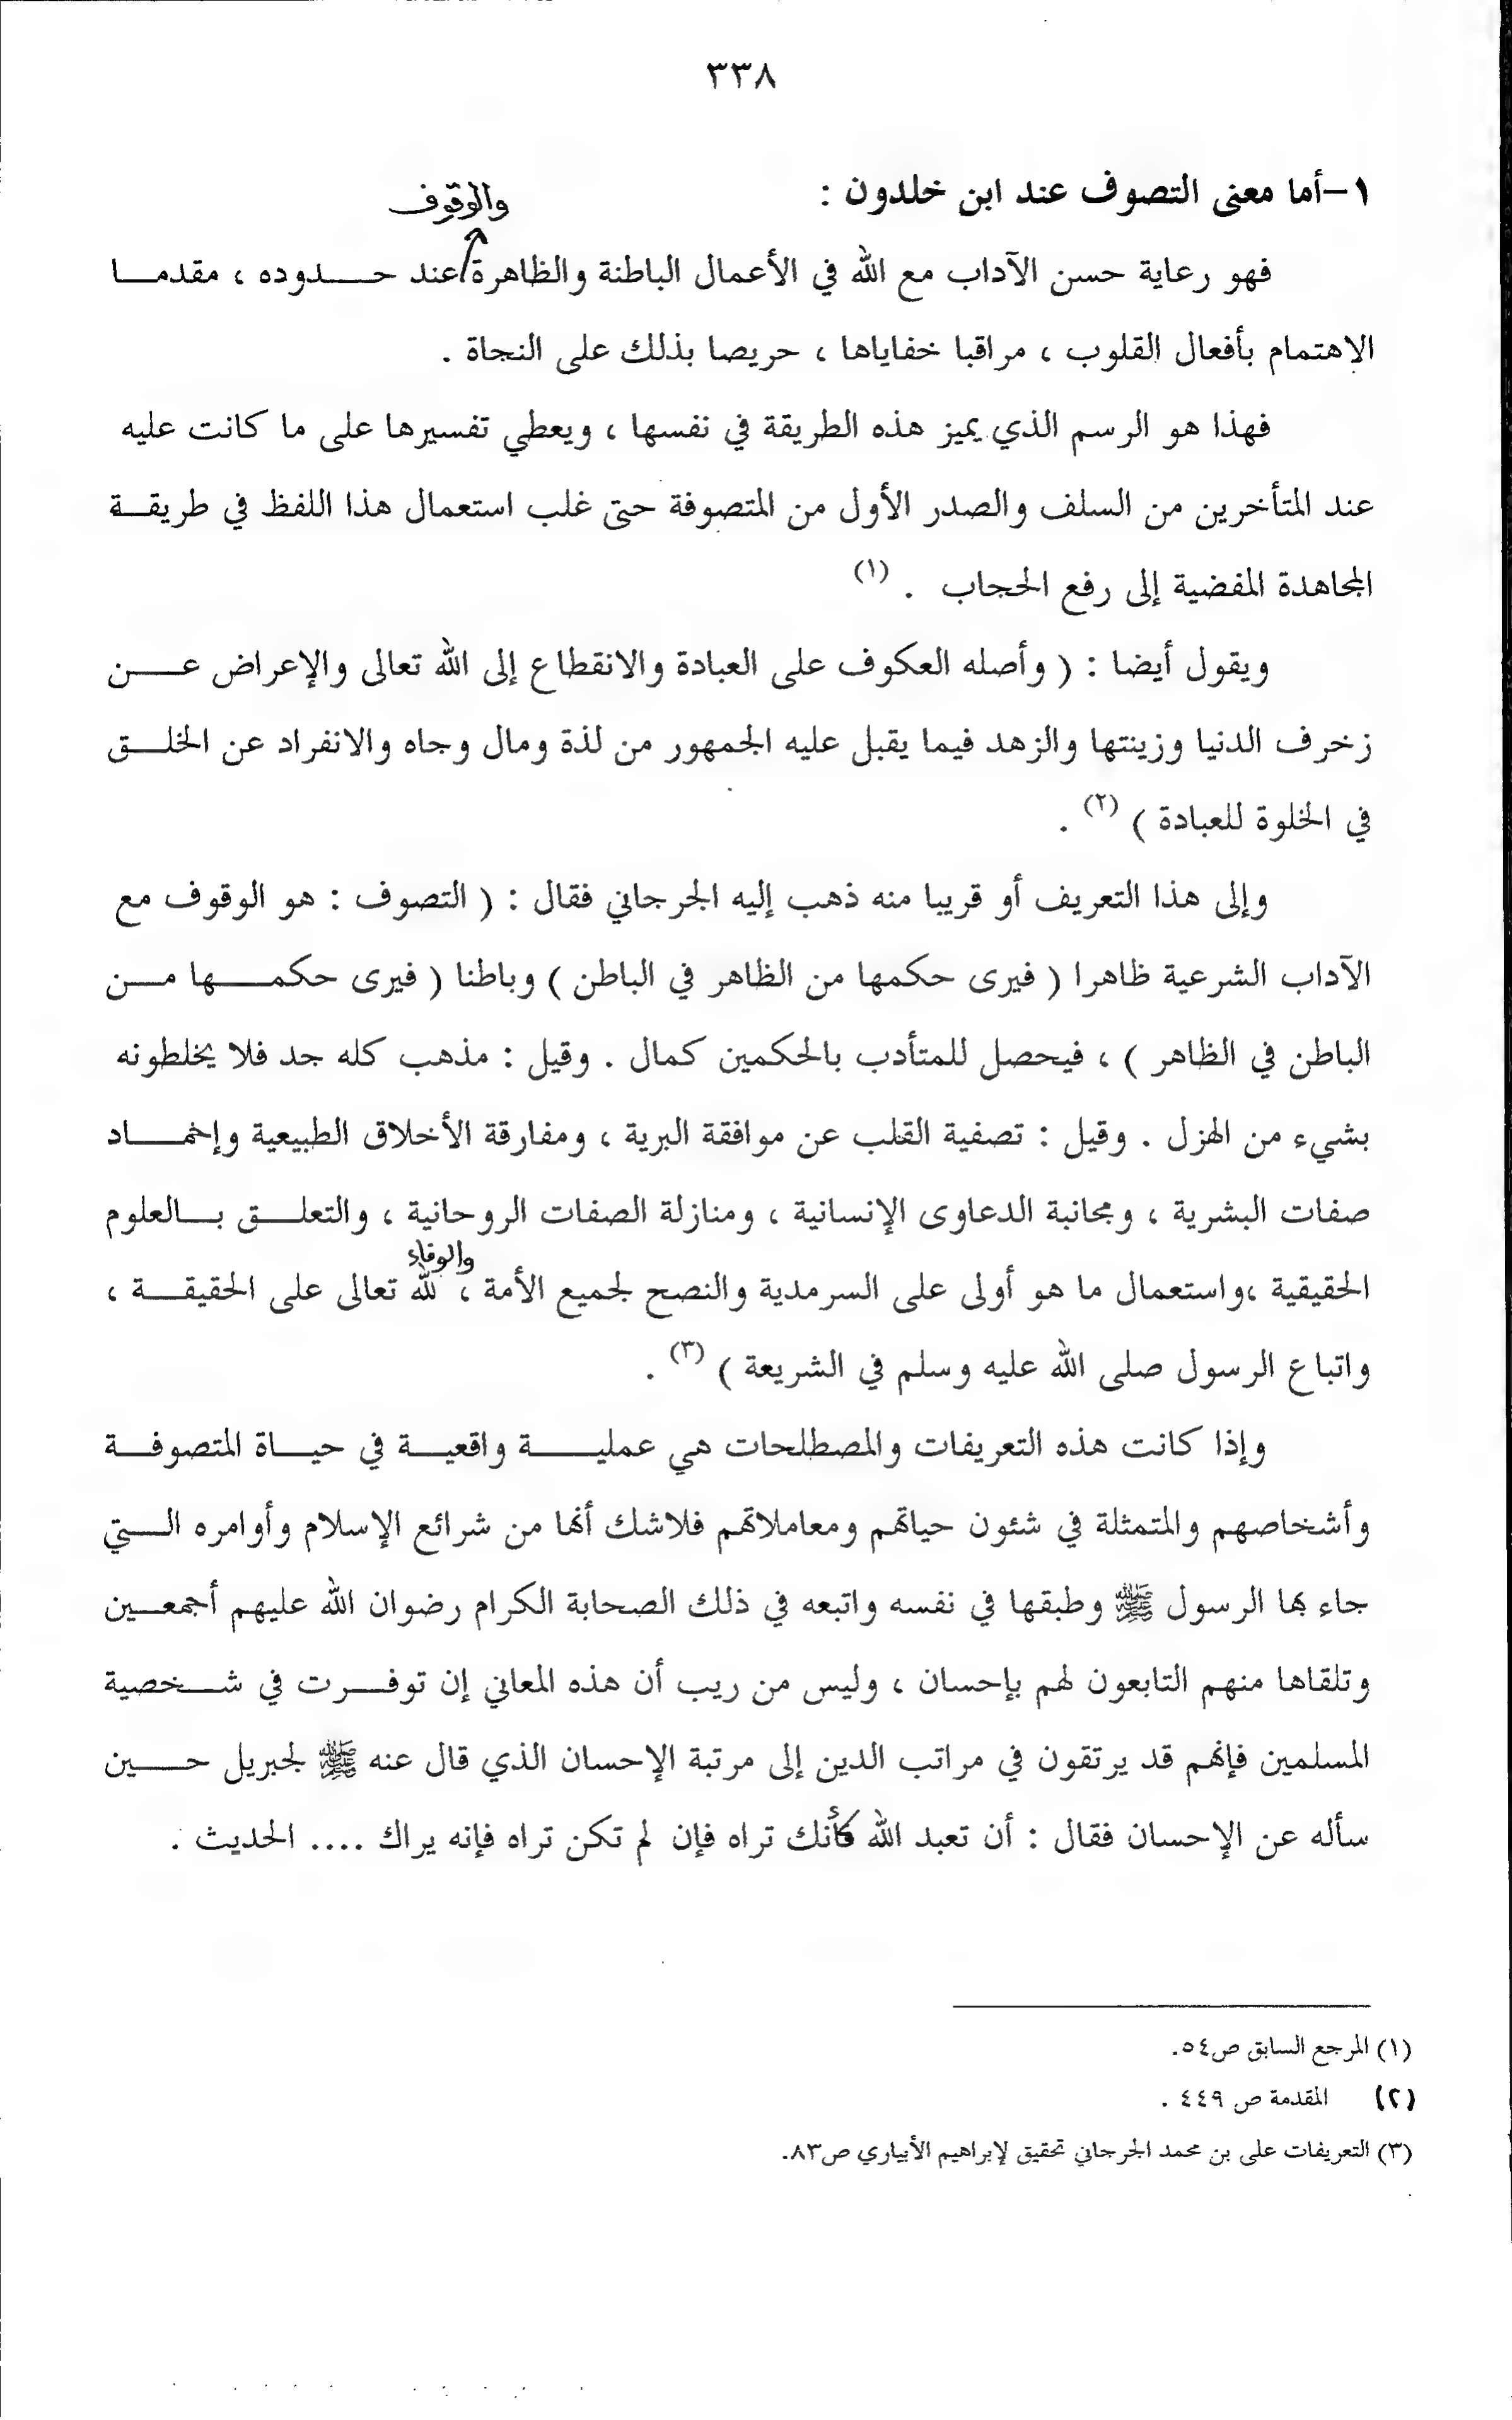 ٣٣٨
١-أما معنى التصوف عند ابن خلدون :
والوقوف
فهو رعاية حسن الآداب مع الله في الأعمال الباطنة والظاهرة/عند حدوده ، مقدما
الاهتمام بأفعال القلوب ، مراقبا خفاياها ، حريصا بذلك على النجاة .
فهذا هو الرسم الذي يميز هذه الطريقة في نفسها ، ويعطي تفسيرها على ما كانت عليه
عند المتأخرين من السلف والصدر الأول من المتصوفة حتى غلب استعمال هذا اللفظ في طريقة
المجاهدة المفضية إلى رفع الحجاب . (١)
ويقول أيضا : ( وأصله العكوف على العبادة والانقطاع إلى الله تعالى والإعراض عن
زخرف الدنيا وزينتها والزهد فيما يقبل عليه الجمهور من لذة ومال وجاه والانفراد عن الخلق
في الخلوة للعبادة ) (٢) .
وإلى هذا التعريف أو قريبا منه ذهب إليه الجرجاني فقال : ( التصوف : هو الوقوف مع
الآداب الشرعية ظاهرا ( فيرى حكمها من الظاهر في الباطن ) وباطنا ( فيرى حكمها من
الباطن في الظاهر ) ، فيحصل للمتأدب بالحكمين كمال . وقيل : مذهب كله جد فلا يخلطونه
بشيء من الهزل . وقيل : تصفية القلب عن موافقة البرية ، ومفارقة الأخلاق الطبيعية وإخماد
صفات البشرية ، ومجانبة الدعاوى الإنسانية ، ومنازلة الصفات الروحانية ، والتعلق بالعلوم
والوفاء
الحقيقية ،واستعمال ما هو أولى على السرمدية والنصح لجميع الأمة ، لله تعالى على الحقيقة ،
واتباع الرسول صلى الله عليه وسلم في الشريعة ) (٣) .
وإذا كانت هذه التعريفات والمصطلحات هي عملية واقعية في حياة المتصوفة
وأشخاصهم والمتمثلة في شئون حياتهم ومعاملاتهم فلاشك أنها من شرائع الإسلام وأوامره التي
جاء بها الرسول ﷺ وطبقها في نفسه واتبعه في ذلك الصحابة الكرام رضوان الله عليهم أجمعين
وتلقاها منهم التابعون لهم بإحسان ، وليس من ريب أن هذه المعاني إن توفرت في شخصية
المسلمين فإنهم قد يرتقون في مراتب الدين إلى مرتبة الإحسان الذي قال عنه ﷺ لجبريل حين
سأله عن الإحسان فقال : أن تعبد الله كأنك تراه فإن لم تكن تراه فإنه يراك .... الحديث .
(١) المرجع السابق ص٥٤.
(٢) المقدمة ص ٤٤٩ .
(٣) التعريفات على بن محمد الجرجاني تحقيق لإبراهيم الأبياري ص٨٣.